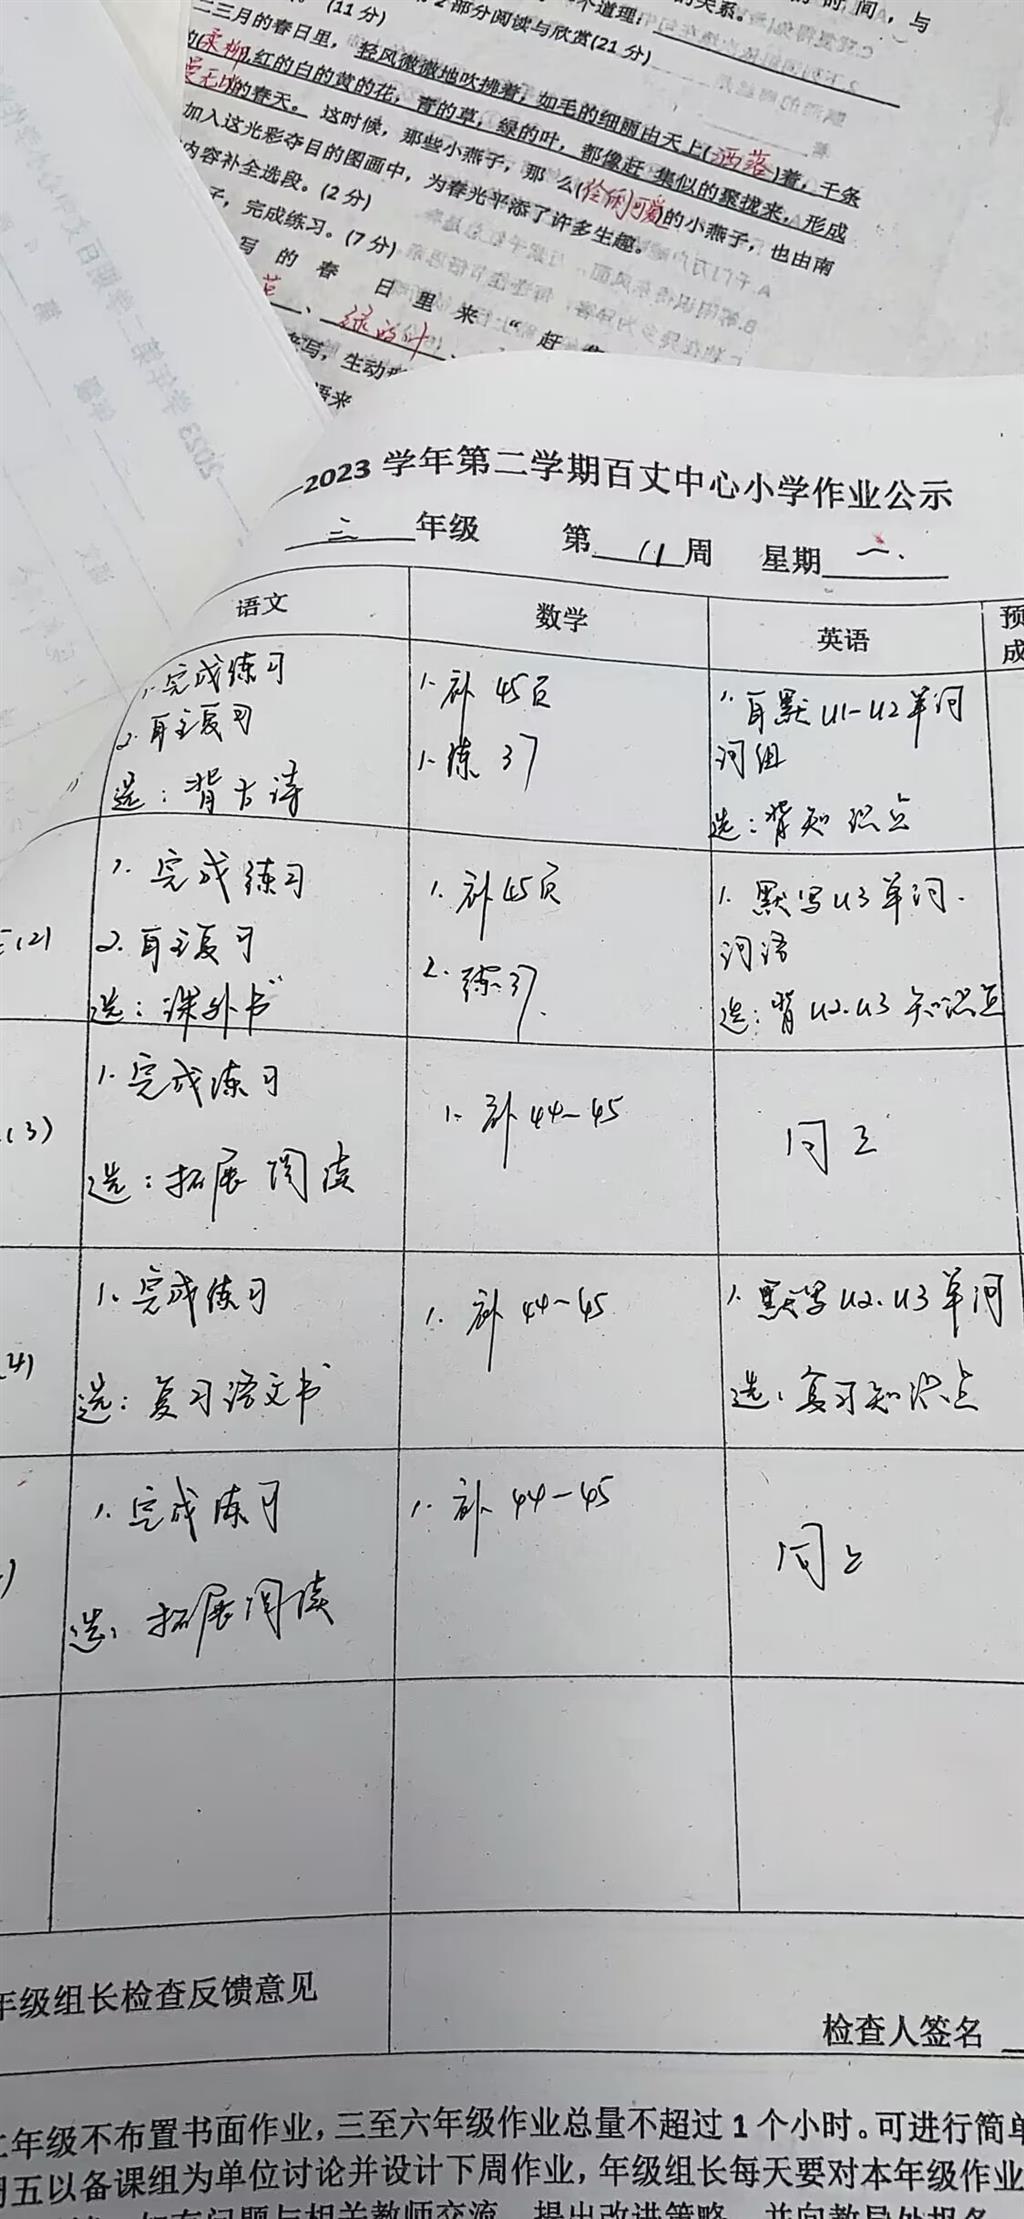 (11分)
2部分阅读与欣赏(21分)
二三月的春日里，轻风微微地吹拂着，如毛的细雨由天上(洒落)着，千条
(柔柳),红的白的黄的花，青的草，绿的叶，都像赶 集似的聚拢来，形成
的春天。这时候，那些小燕子，那 么(伶俐可爱)的小燕子，也由南
加入这光彩夺目的图画中，为春光平添了许多生趣。
内容补全选段。(2分)
子，完成练习。(7分)
写 的 春 日 里 来 “ 赶
、绿的叶
来写，生动
语来
2023学年第二学期百丈中心小学作业公示
三 年级 第 11 周 星期 一.
语文 数学 英语 预
成
1.完成练习
2.自主复习
选：背古诗
1.补 45页
1.练 37
1.自默U1-U2单词
词组
选：背知识点
(2)
1.完成练习
2.自主复习
选：课外书
1.补45页
2.练37.
1.默写U3单词.
词语
选：背U2.U3知识点
(3)
1.完成练习
选：拓展阅读
1.补44~45
同上
4)
1.完成练习
选：复习语文书
1.补44~45
1.默写U2.U3单词
选：复习知识点
)
1.完成练习
选：拓展阅读
1.补44-45
同上
年级组长检查反馈意见
检查人签名
年级不布置书面作业，三至六年级作业总量不超过1个小时。可进行简单
五以备课组为单位讨论并设计下周作业，年级组长每天要对本年级作业